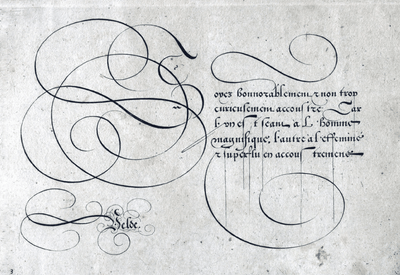 Soyes honnorablement & non trop
curieusement accoustré. Car
l'vn est seant à L'homme
magnifique, l'autre à l'effeminé
& superflu en accoustremens
Velde.